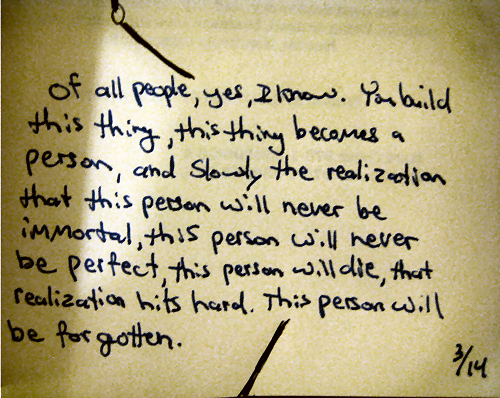 Of all people, yes, I know. You build
this thing, this thing becomes a
person, and slowly the realization
that this person will never be
immortal, this person will never
be perfect, this person will die, that
realization hits hard. This person will
be forgotten.
3/14